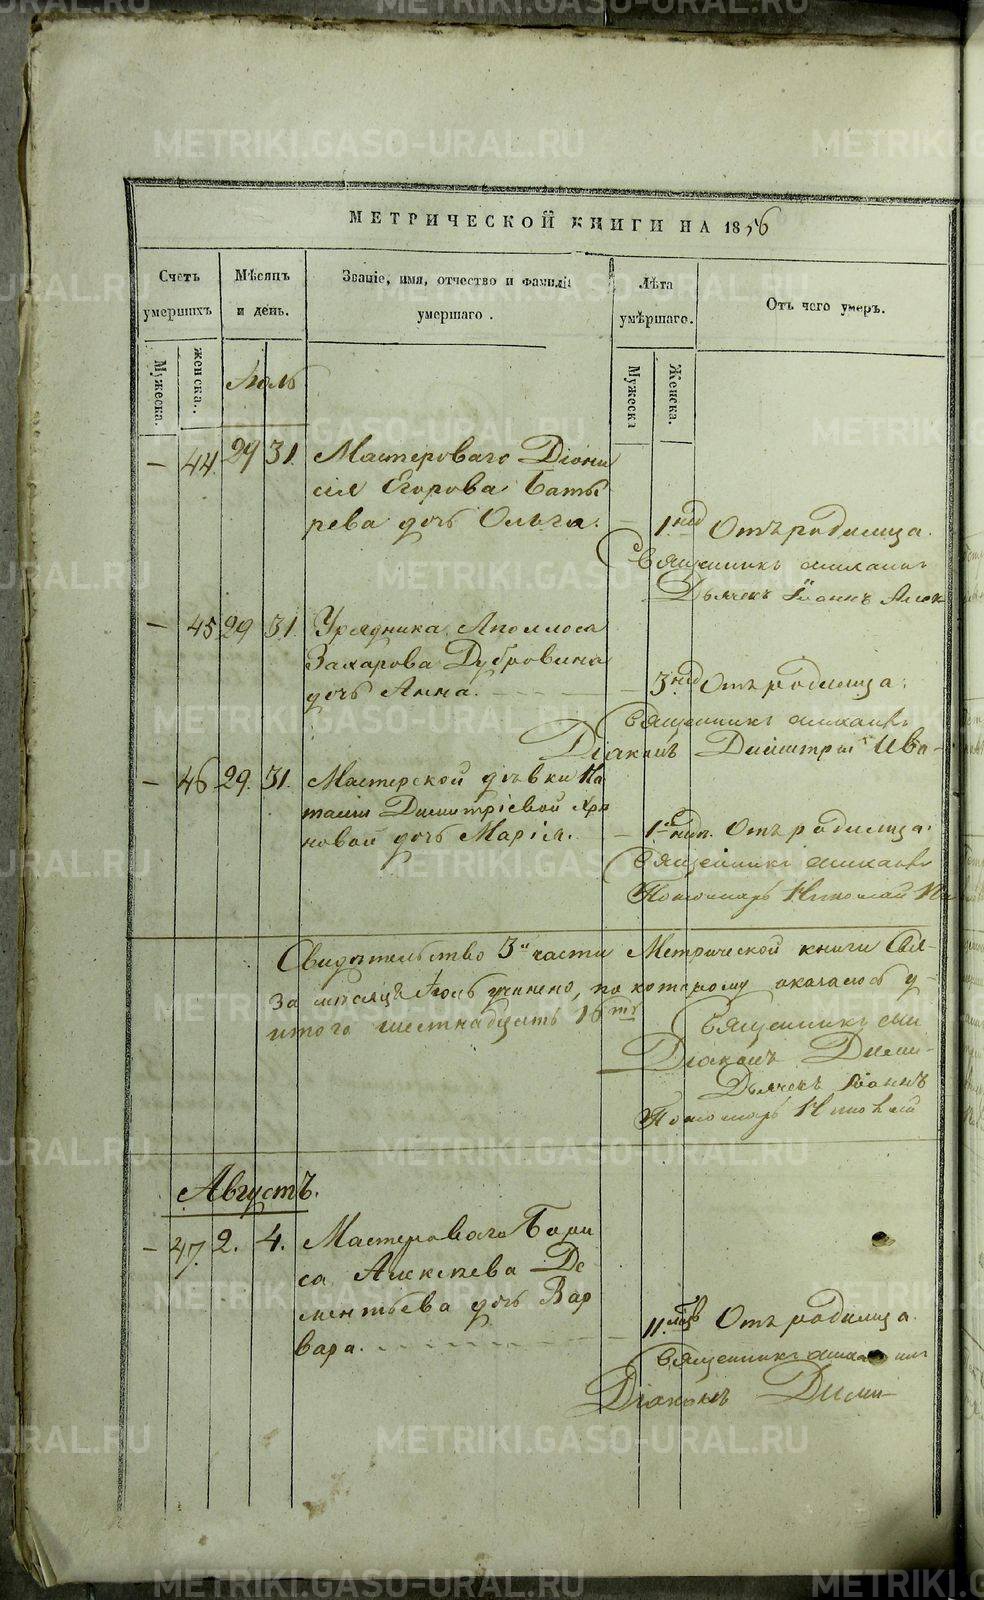 МЕТРИЧЕСКОЙ КНИГИ НА 1856
Счетъ умершихъ
Мѣсяцъ и день.
Званіе, имя, отчество и фамилія умершаго.
Лѣта умѣршаго.
Отъ чего умеръ.
Мужеска.
женска.
Мужеска
Женска.
Іюль
— 44. 29 31. Мастероваго Діони
сія Егорова Баты
рева дочь Ольга. — 1. нѣд Отъ родимца.
Священникъ
Дьячекъ Іоаннъ
— 45 29 31. Урядника Аполлоса
Захарова Дубровина
дочь Анна. — 3. нѣд Отъ родимца.
Священникъ
Діаконъ Димитрій Ива-
— 46 29. 31. Мастерской дѣвки На
таліи Димитріевой
новой дочь Марія. — 1. нѣд. Отъ родимца.
Священникъ
Пономарь Николай
Свидѣтельство 3й части Метрической книги
за мѣсяцъ Іюль учинено, по которому оказалось у-
итого шестнадцать 16ть
Священникъ
Діаконъ Дими-
Дьячекъ Іоаннъ
Пономарь Николай
Августъ.
— 47. 2. 4. Мастероваго Бори
са Алексѣева Де
ментьева дочь Вар
вара. — 11. мѣс Отъ родимца.
Священникъ
Діаконъ Дими-
METRIKI.GASO-URAL.RU